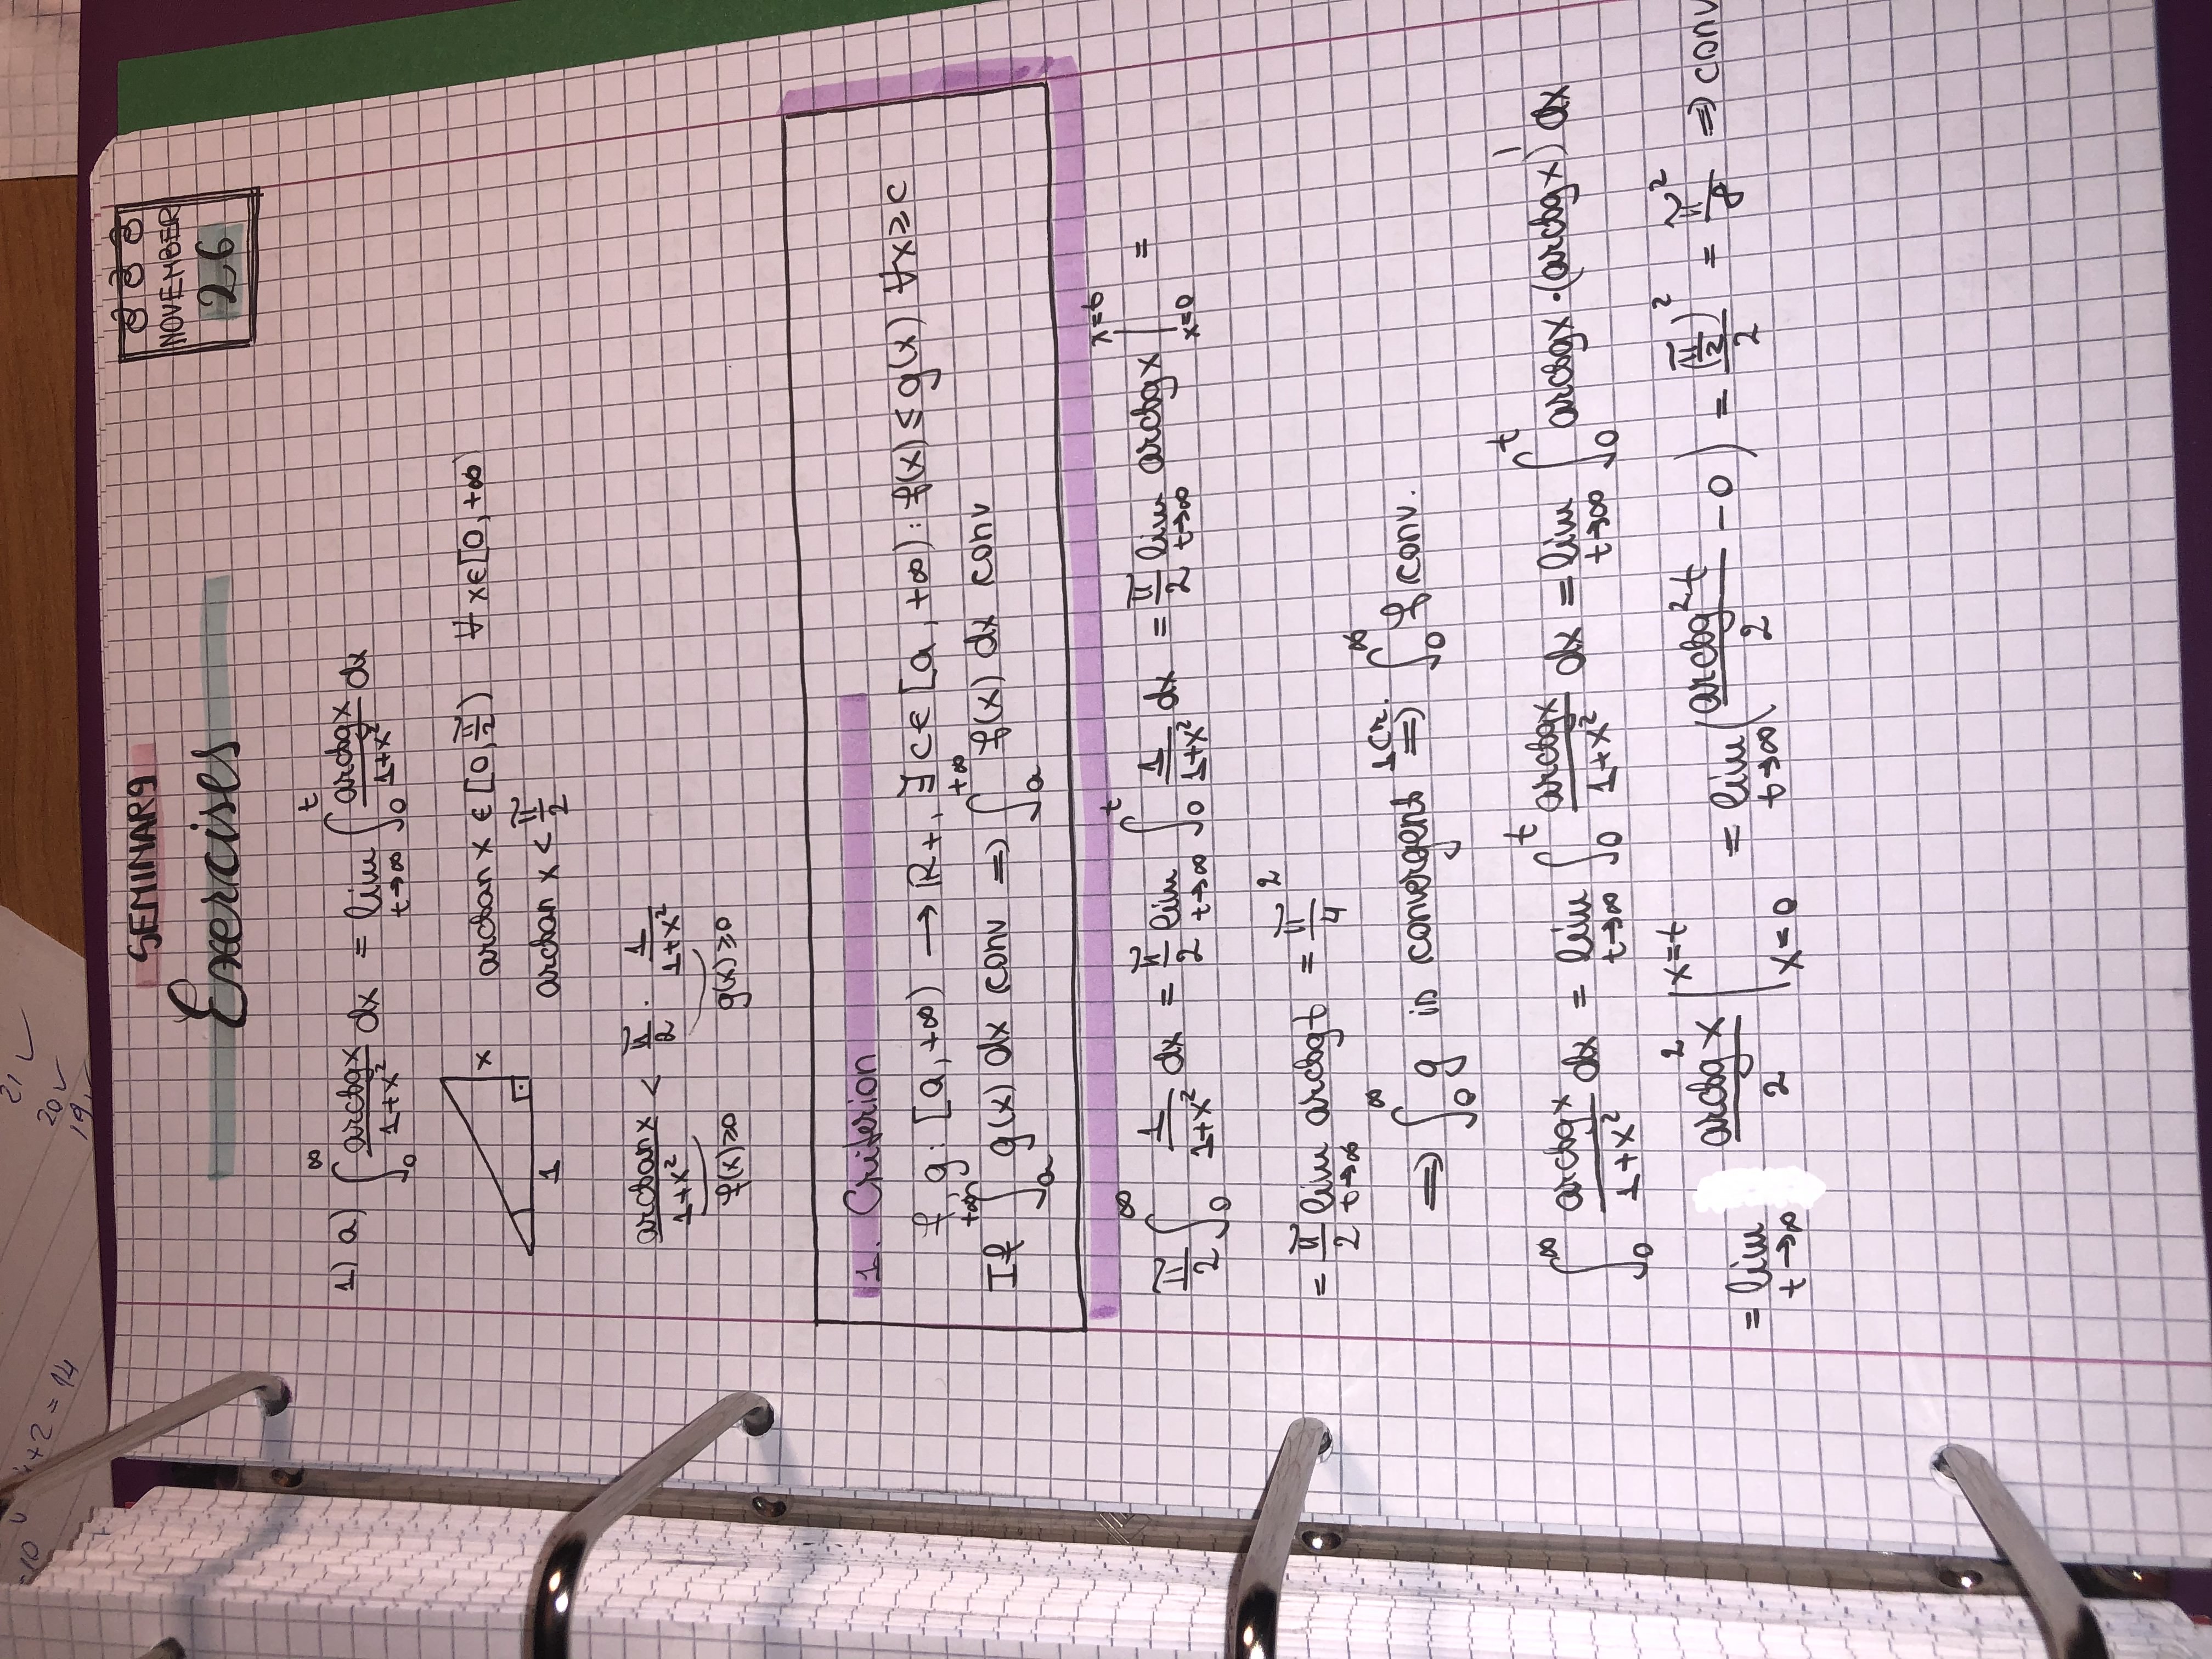 =10 4+2=14
21 ✓
20 ✓
19 ✓
SEMINAR 9
Exercises
NOVEMBER
26
1) a) ∫₀^∞ arctgx/(1+x²) dx = lim_{t→∞} ∫₀^t arctgx/(1+x²) dx
x
1
arctan x ∈ [0, π/2) ∀ x∈[0, +∞)
arctan x < π/2
arctan x/(1+x²) < π/2 · 1/(1+x²)
f(x)≥0 g(x)≥0
1. Criterion
f, g: [a, +∞) → R+, ∃ c∈ [a, +∞): f(x) ≤ g(x) ∀x≥c
If ∫_a^{+∞} g(x) dx conv ⇒ ∫_a^{+∞} f(x) dx conv
π/2 ∫₀^∞ 1/(1+x²) dx = π/2 lim_{t→∞} ∫₀^t 1/(1+x²) dx = π/2 lim_{t→∞} arctgx |_{x=0}^{x=t} =
= π/2 lim_{t→∞} arctgt = π²/4
⇒ ∫₀^∞ g is convergent ⇒ (1Cr.) ∫₀^∞ f conv.
∫₀^∞ arctgx/(1+x²) dx = lim_{t→∞} ∫₀^t arctgx/(1+x²) dx = lim_{t→∞} ∫₀^t arctgx·(arctgx)' dx
= lim_{t→∞} arctg²x/2 |_{x=0}^{x=t} = lim_{t→∞} (arctg²t/2 - 0) = (π/2)²/2 = π²/8 ⇒ conv